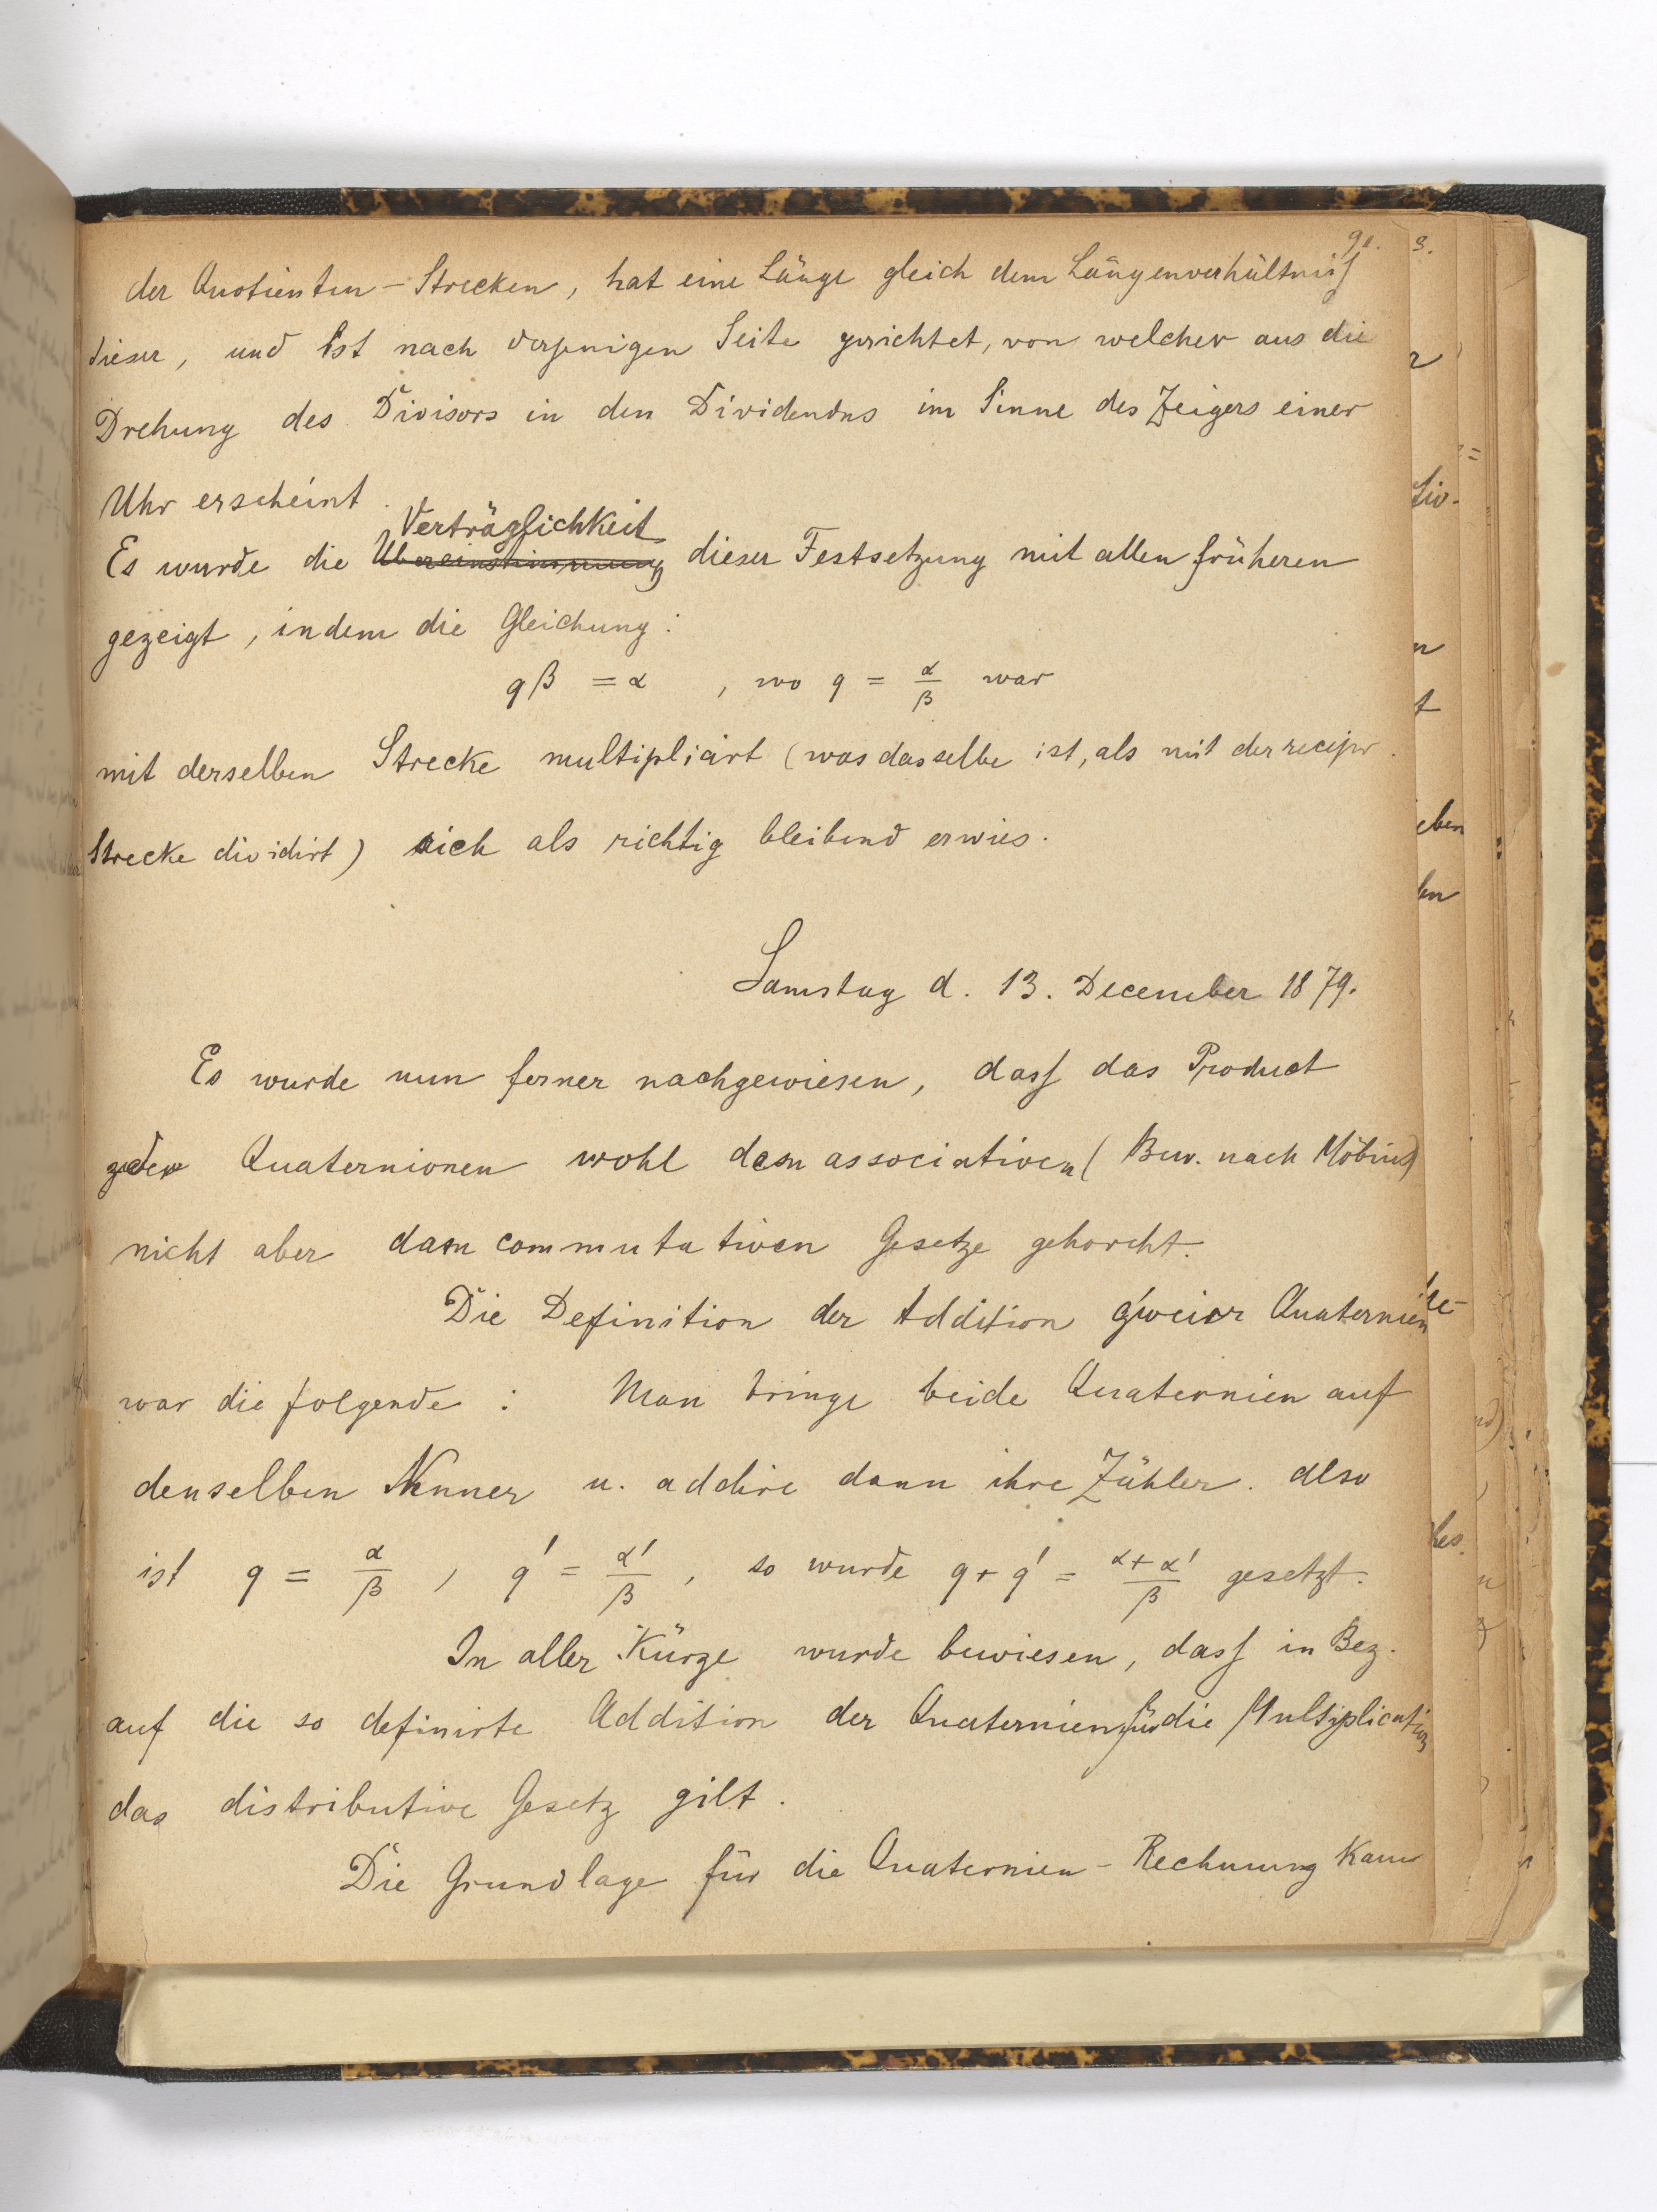 der Quotienten-Strecken, hat eine Länge gleich dem Längenverhältniss
dieser, und ist nach derjenigen Seite gerichtet, von welcher aus die
Drehung des Divisors in den Dividendus im Sinne des Zeigers einer
Uhr erscheint.
Verträglichkeit
Es wurde die Übereinstimmung dieser Festsetzung mit allen früheren
gezeigt, indem die Gleichung:
qβ = α , wo q = α/β war
mit derselben Strecke multiplicirt (was dasselbe ist, als mit der recipr.
Strecke dividirt) sich als richtig bleibend erwies.
Samstag d. 13. December 1879.
Es wurde nun ferner nachgewiesen, dass das Product
Quaternionen wohl dem associativen (Bew. nach Möbius)
nicht aber dem commutativen Gesetze gehorcht.
Die Definition der Addition zweier Quaternien
war die folgende: Man bringe beide Quaternien auf
denselben Nenner u. addire dann ihre Zähler. also
ist q = α/β , q' = α'/β , so wurde q + q' = α+α'/β gesetzt.
In aller Kürze wurde bewiesen, dass in Bez.
auf die so definirte Addition der Quaternien für die Multiplication
das distributive Gesetz gilt.
Die Grundlage für die Quaternien-Rechnung kann